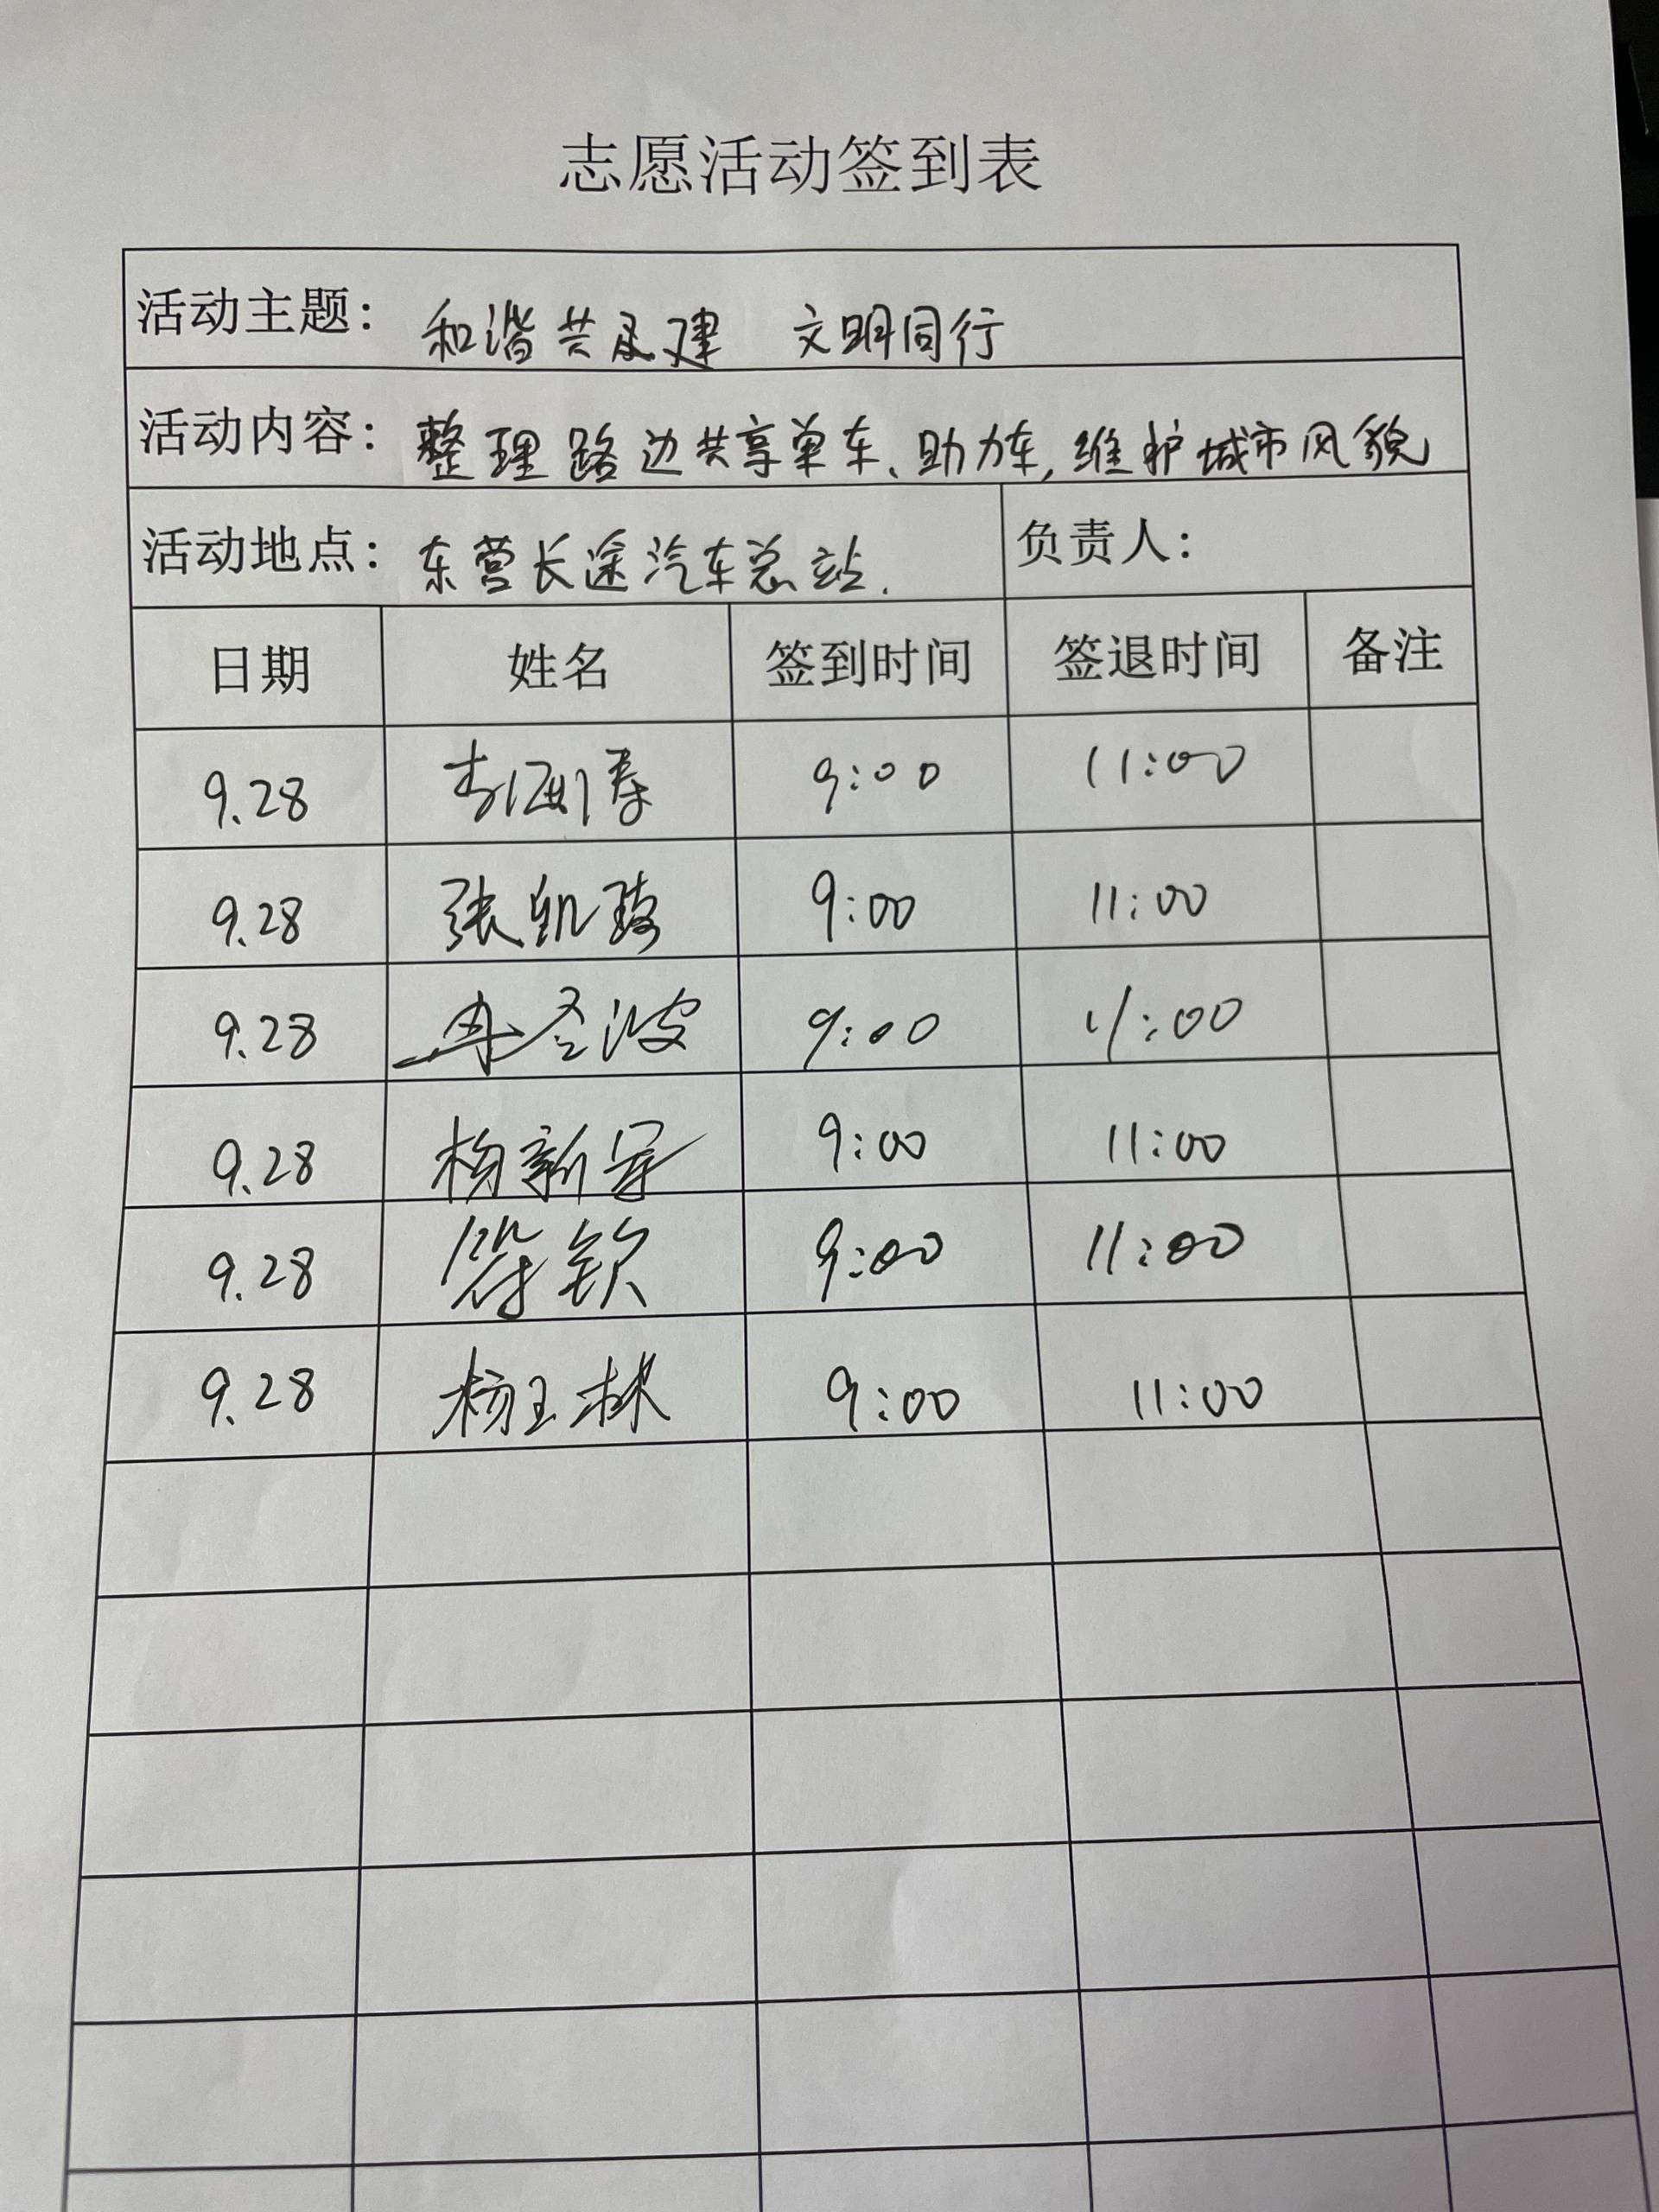 志愿活动签到表
活动主题: 和谐共建 文明同行
活动内容: 整理路边共享单车、助力车,维护城市风貌
活动地点: 东营长途汽车总站. 负责人:
日期 姓名 签到时间 签退时间 备注
9.28 9:00 11:00
9.28 张凯 9:00 11:00
9.28 9:00 11:00
9.28 杨新军 9:00 11:00
9.28 钦 9:00 11:00
9.28 杨玉林 9:00 11:00